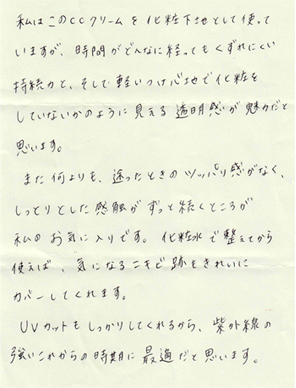 私はこのCCクリームを化粧下地として使って
いますが、時間がどんなに経ってもくずれにくい
持続力と、そして軽いつけ心地で化粧を
していないかのように見える透明感が魅力だと
思います。
また何よりも、塗ったときのツッパリ感がなく、
しっとりとした感触がずっと続くところが
私のお気に入りです。化粧水で整えてから
使えば、気になるニキビ跡をきれいに
カバーしてくれます。
UVカットもしっかりしてくれるから、紫外線の
強いこれからの時期に最適だと思います。